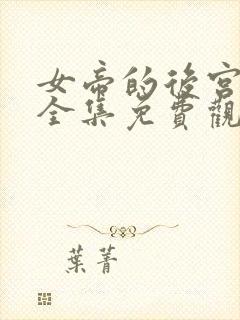 女帝的後宮
全集免費觀
葉菁